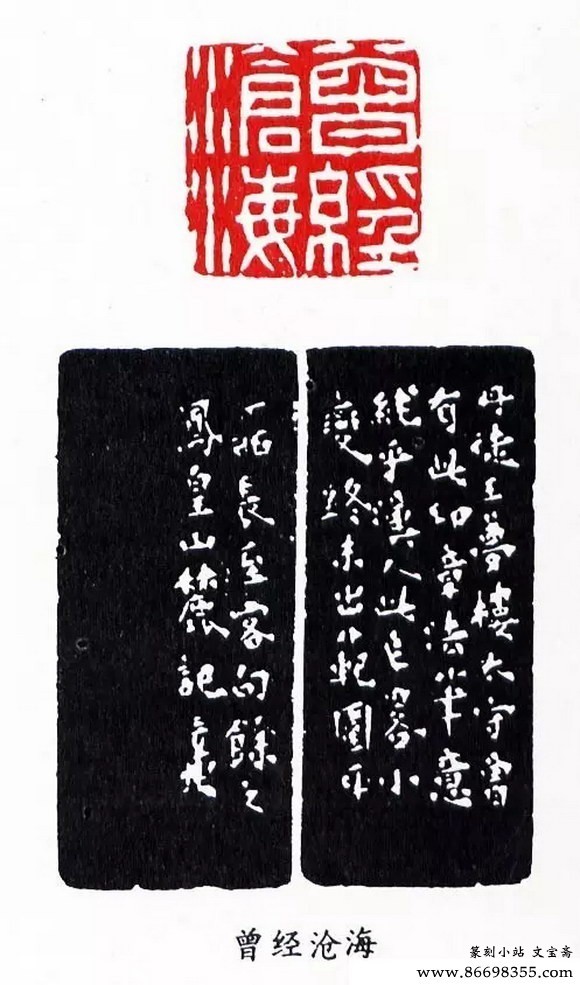 曾經
滄海
丹徒王夢樓太守曾
有此印章法筆意
純乎漢人此已畧小
變終未出八範圍
長至客句餘之
鳳皇山麓記
曾经沧海
篆刻小站 文宝斋
www.86698355.com